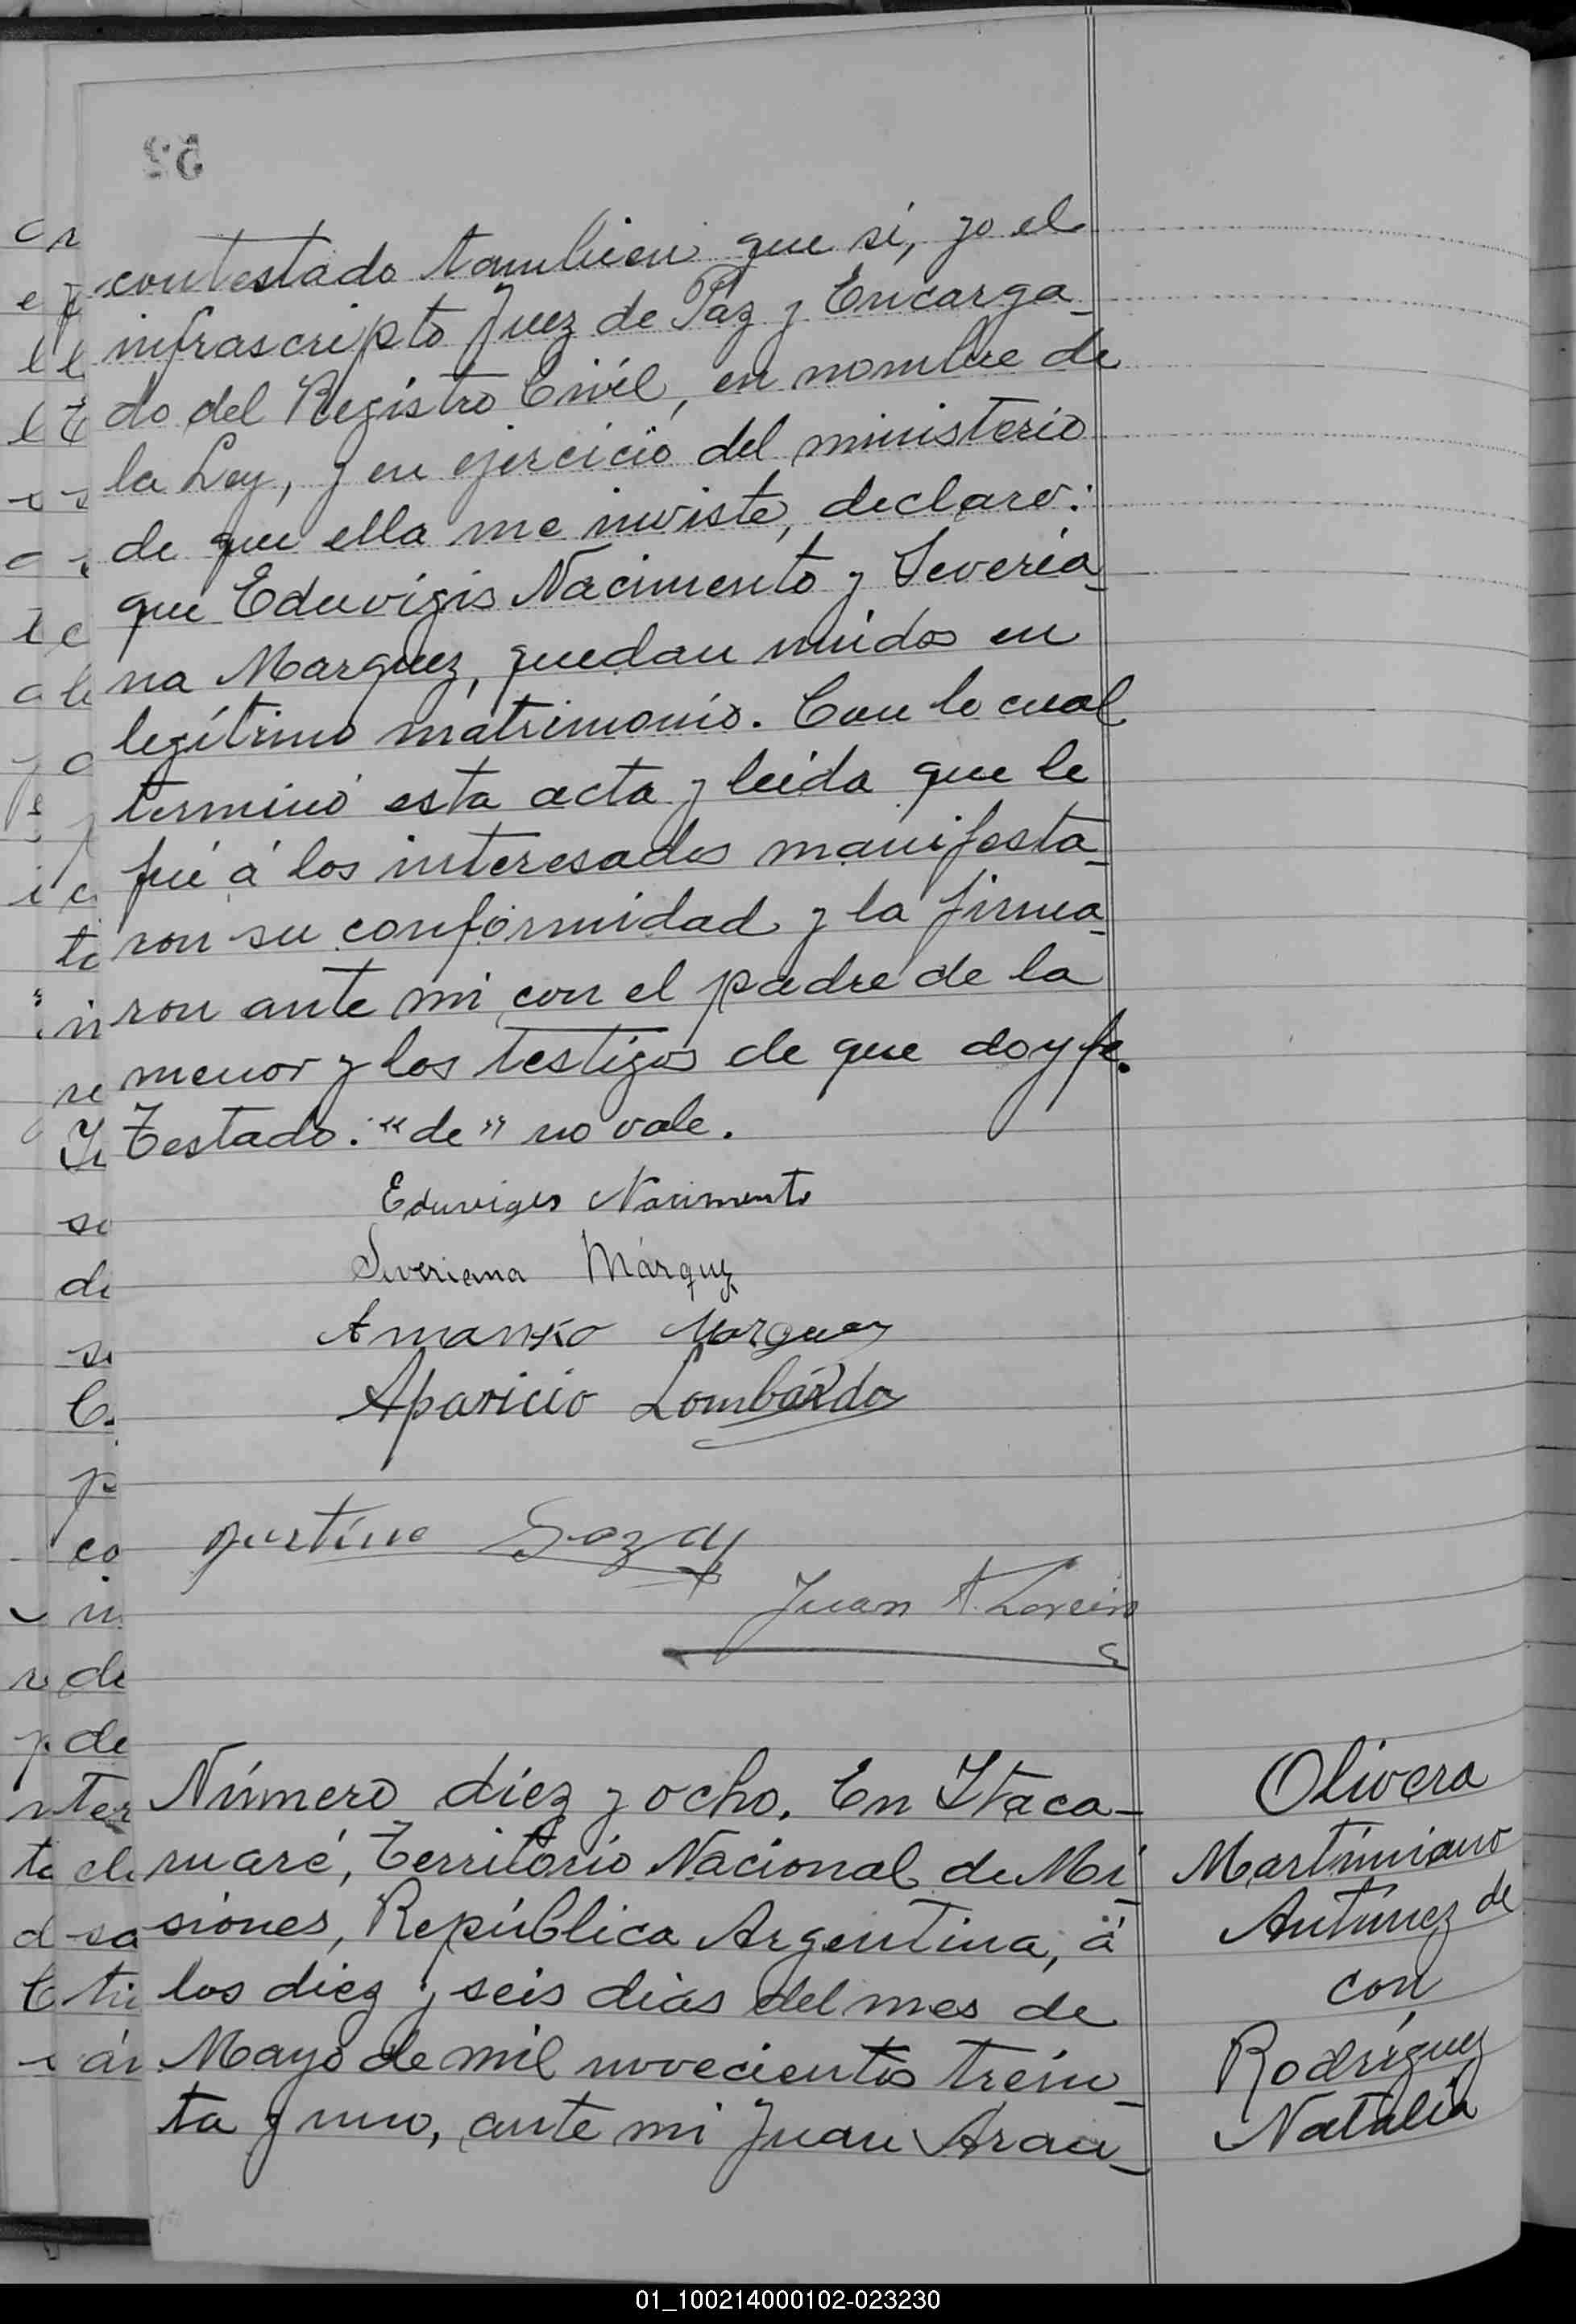 contestado tambien que si, yo el
infrascripto Juez de Paz y Encarga-
do del Registro Civil, en nombre de
la Ley, y en ejercicio del ministerio
de que ella me inviste, declaro:
que Eduvigis Nacimento y Severia-
na Marquez, quedan unidos en
legítimo matrimonio. Con lo cual
terminó esta acta y leida que le
fué á los interesados manifesta-
ron su conformidad y la firma-
ron ante mi con el padre de la
menor y los testigos de que doy fe.
Testado: "de" no vale.
Eduviges Nacimento
Severiana Márquez
Amansio Marquez
Aparicio Lombardo
Justino
Juan A.
Número diez y ocho. En Itaca-
ruaré, Territorio Nacional de Mi-
siones, República Argentina, á
los diez y seis dias del mes de
Mayo de mil novecientos trein-
ta y uno, ante mi Juan Arau-
Olivera
Martiniano
Antúnez de
con
Rodríguez
Natalia
01_100214000102-023230